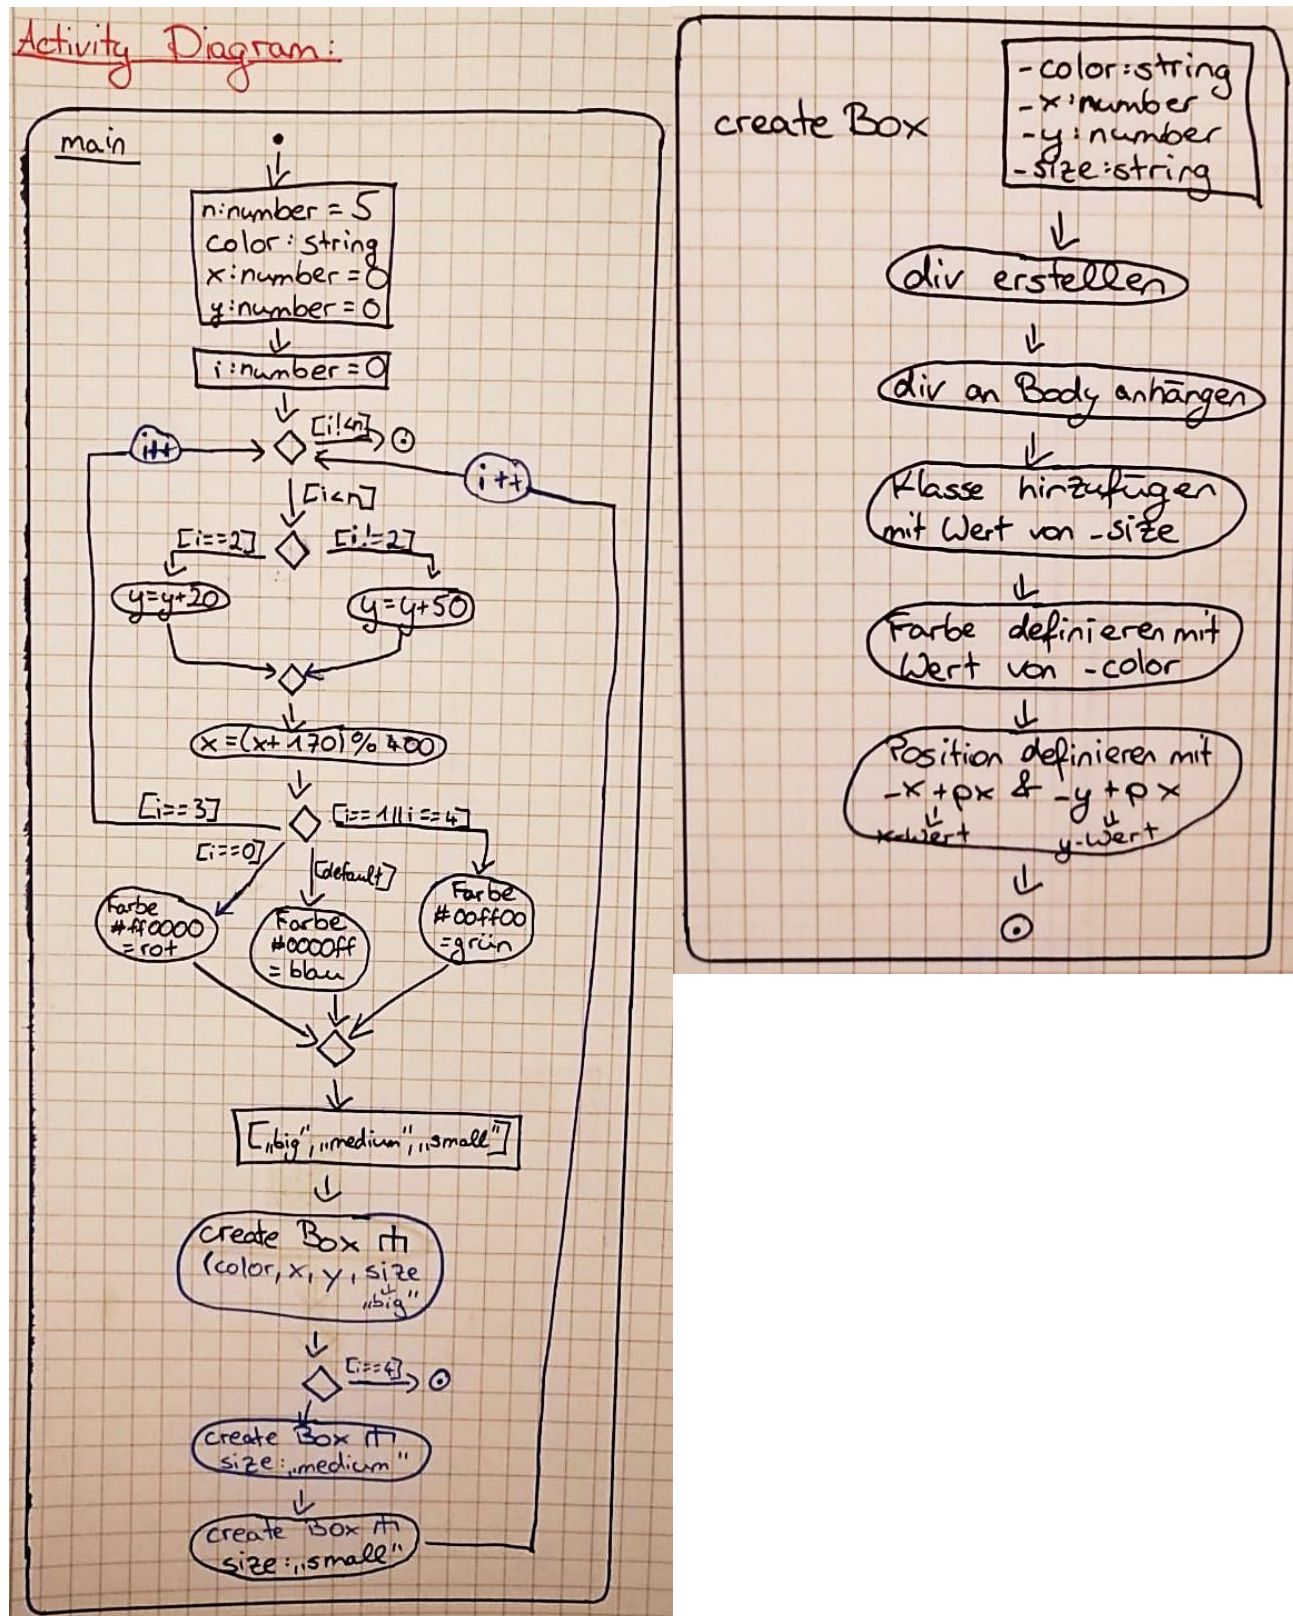 Activity Diagram:
main
n:number = 5
color: string
x:number = 0
y:number = 0
i:number = 0
[i!<n]
i++
i++
[i<n]
[i==2]
[i!=2]
y=y+20
y=y+50
x=(x+170)%400
[i==3]
[i==1||i==4]
[i==0]
[default]
Farbe
#ff0000
=rot
Farbe
#0000ff
=blau
Farbe
#00ff00
=grün
[„big",„medium",„small"]
create Box
(color, x, y, size
„big"
[i==4]
create Box
size:„medium"
create Box
size:„small"
create Box
-color:string
-x:number
-y:number
-size:string
div erstellen
div an Body anhängen
Klasse hinzufügen
mit Wert von -size
Farbe definieren mit
Wert von -color
Position definieren mit
-x+px & -y+px
x-Wert y-Wert